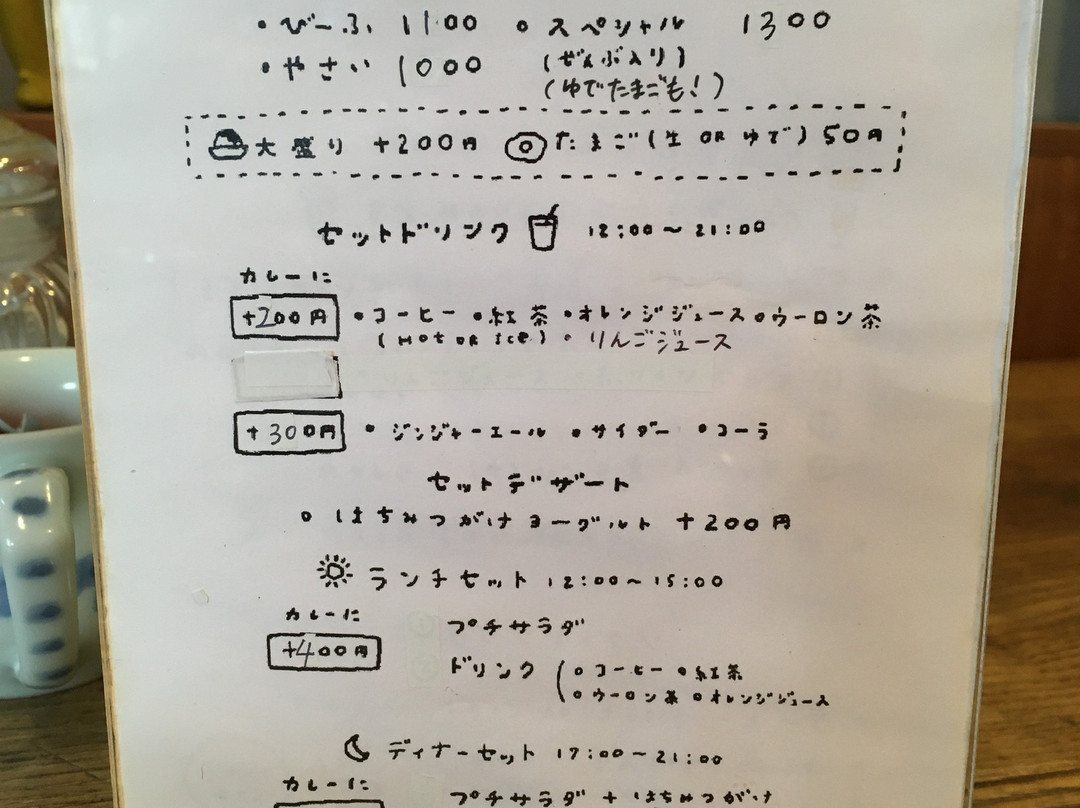 • びーふ 1100 • スペシャル 1300
• やさい 1000 (ぜんぶ入り)
(ゆでたまごも!)
大盛り +200円 たまご(生 OR ゆで) 50円
セットドリンク 12:00〜21:00
カレーに
+200円 •コーヒー •紅茶 •オレンジジュース •ウーロン茶
(Hot OR Ice) • りんごジュース
+300円 • ジンジャーエール • サイダー • コーラ
セットデザート
• はちみつがけヨーグルト +200円
ランチセット 12:00〜15:00
カレーに プチサラダ
+400円 ドリンク (•コーヒー •紅茶
•ウーロン茶 •オレンジジュース
ディナーセット 17:00〜21:00
カレーに プチサラダ + はちみつがけ